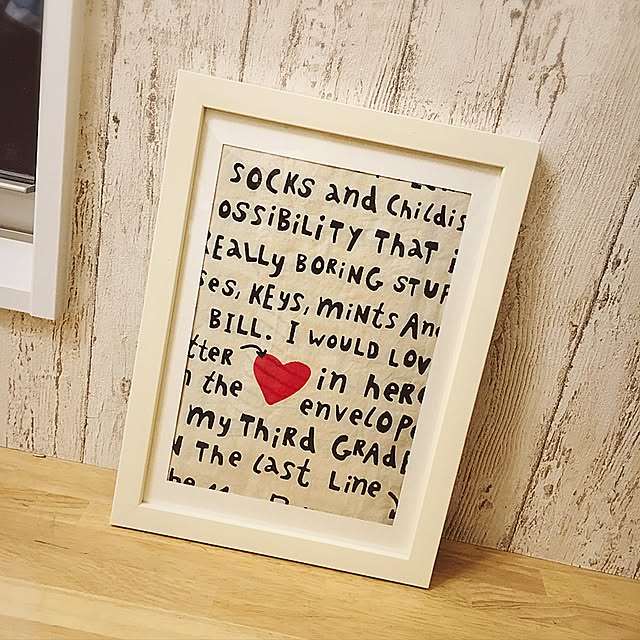 SOCKS and Childis
OSSIBILITY THAT i
EALLY BORING STUF
ses, KEYS, mints And
BILL. I WOULD LOV
tter in here
n the envelope
my Third GRAdE
N The Last Line